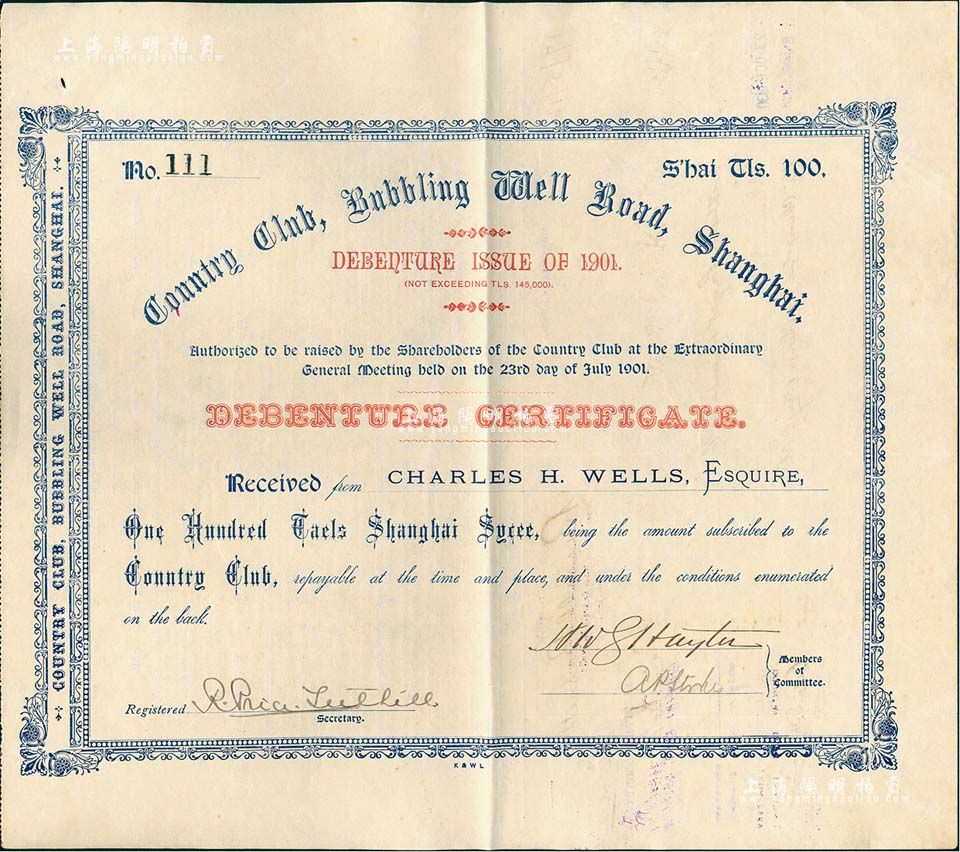 上海陽明拍賣
www.yangmingauction.com
No. 111
S'hai Tls. 100.
Country Club, Bubbling Well Road, Shanghai.
DEBENTURE ISSUE OF 1901.
(NOT EXCEEDING TLS. 145,000).
Authorized to be raised by the Shareholders of the Country Club at the Extraordinary
General Meeting held on the 23rd day of July 1901.
DEBENTURE CERTIFICATE.
上海陽明拍賣
www.yangmingauction.com
Received from CHARLES H. WELLS, ESQUIRE,
One Hundred Taels Shanghai Sycee, being the amount subscribed to the
Country Club, repayable at the time and place, and under the conditions enumerated
on the back.
Members
of
Committee.
Registered R. Price Tuthill
Secretary.
K & W L
COUNTRY CLUB, BUBBLING WELL ROAD, SHANGHAI.
上海陽明拍賣
www.yangmingauction.com